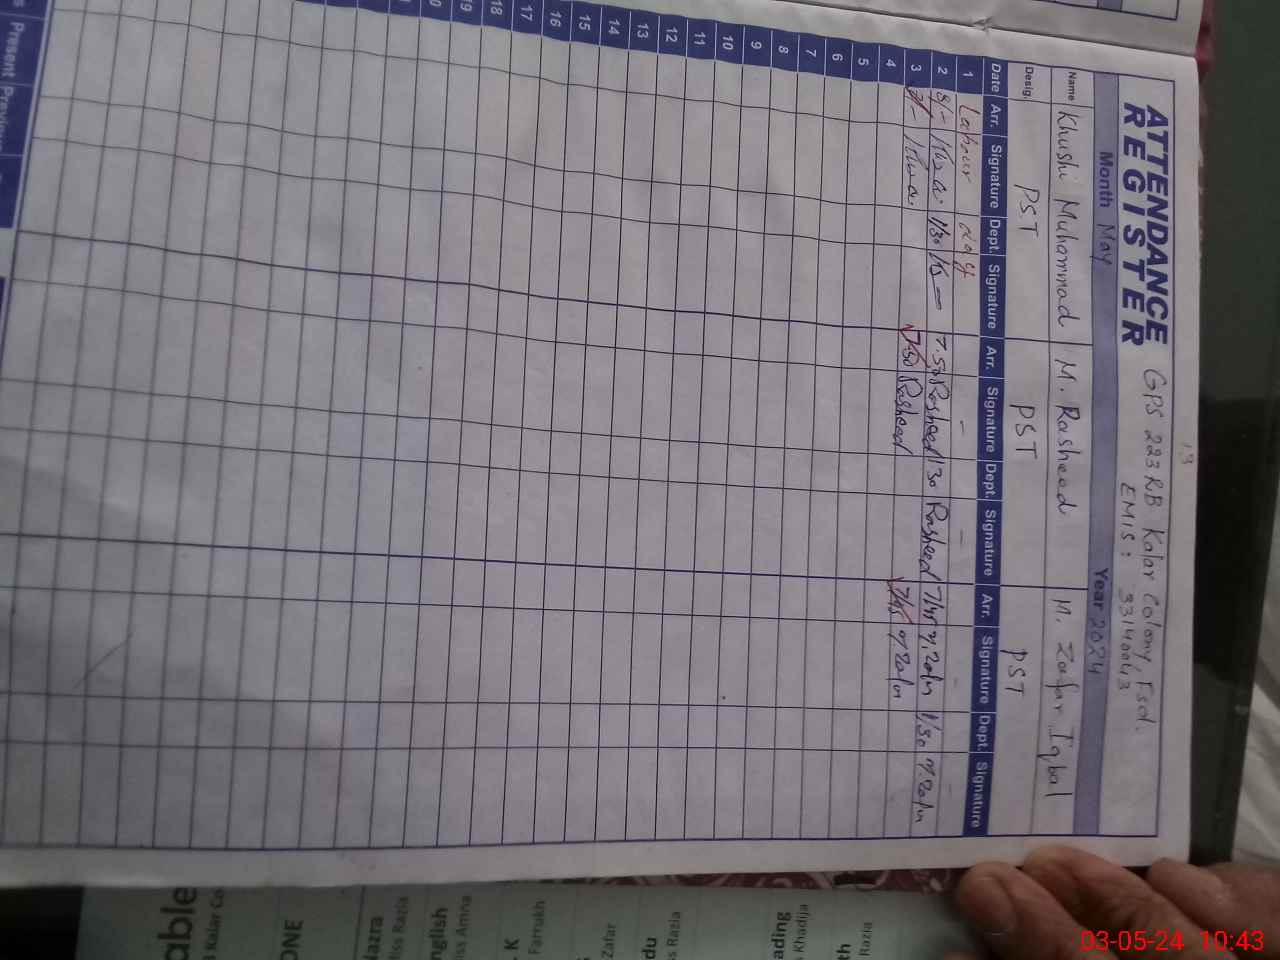 13
ATTENDANCE REGISTER
GPS 223 RB Kalar Colony, Fsd.
EMIS: 33140043
Month May Year 2024
Name Khushi Muhammad M. Rasheed M. Zafar Iqbal
Desig. PST PST PST
Date Arr. Signature Dept. Signature Arr. Signature Dept. Signature Arr. Signature Dept. Signature
1 Labour day - - - -
2 8/- 1/30 7.50 Rasheed 1 30 Rasheed 7/45 1/30
3 7.50 Rasheed 7/45
4
5
6
7
8
9
10
11
12
13
14
15
16
17
18
19
Present
able
Kalar Co
ONE
Nazra
iss Razia
nglish
iss Amna
K
Farrukh
Zafar
du
s Razia
ading
Khadija
th
Razia
03-05-24 10:43